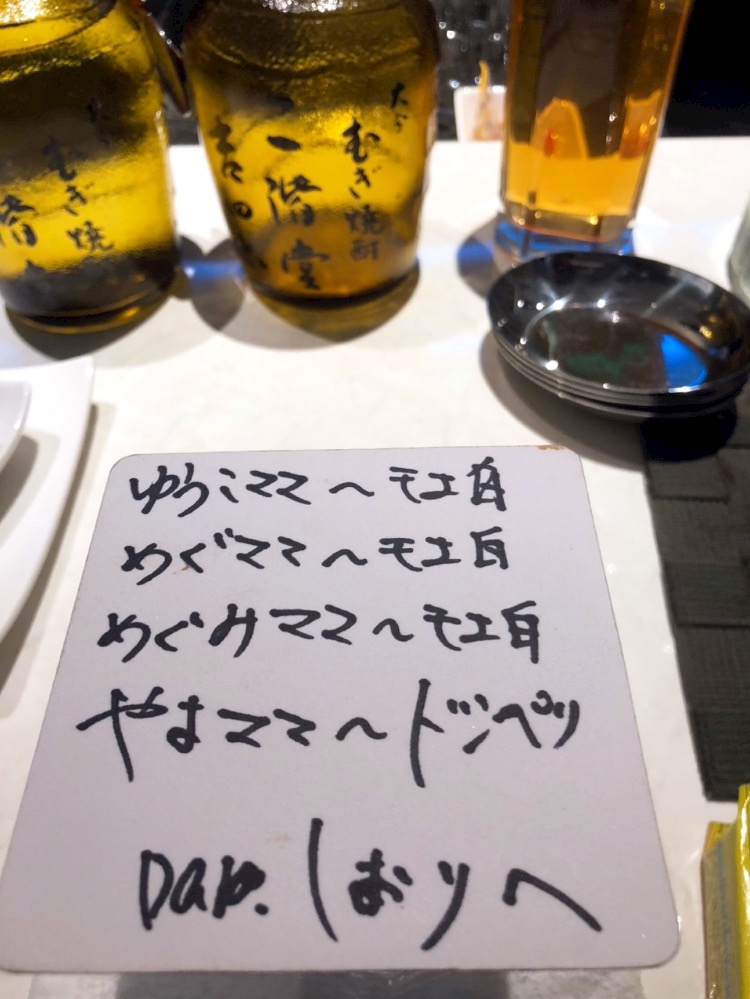 むぎ焼
大分むぎ焼酎
二階堂
吉四六
ゆうこママ〜モエ白
めぐママ〜モエ白
めぐみママ〜モエ白
やよママ〜ドンペリ
しおりへ